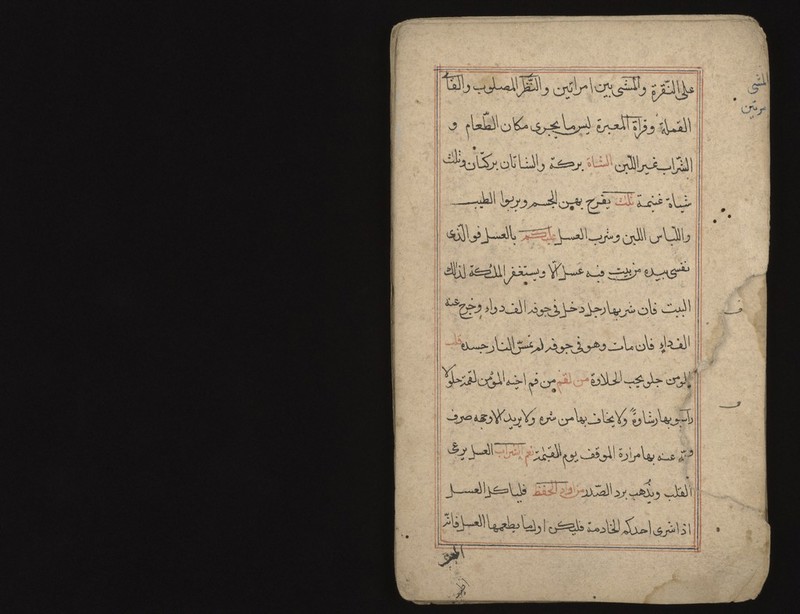 على النقرة والمشى بين امراتين والنظر المصلوب والقاء
القملة وقراة المعبرة ليس ما يجرى مكان الطعام و
الشراب غير اللبن الشاة بركة والشاتان بركتان وثلث
شياة غنيمة ثلث يفرح بهن الجسم ويربوا الطيب
واللباس اللين وشرب العسل عليكم بالعسل فوالذى
نفسى بيده من بيت فيه عسل الا ويستغفر الملئكة لذلك
البيت فان شربها رجل دخل فى جوفه الف دواء وخرج عنه
الف داء فان مات وهو فى جوفه لم تمس النار جسده قلب
المومن حلو يحب الحلاوة من لقم من فم اخيه المؤمن لقمة حلو لا
بها رشاوة ولا يخاف بها من شره ولا يريد الا وجهه صرف
الله عنه بها مرارة الموقف يوم القيمة نعم الشراب العسل يرعى
القلب ويذهب برد الصدر من اراد الحفظ فلياكل العسل
اذا اشرى احدكم الخادمة فليكن اول ما يطعمها العسل فانه
المشى
مرتين
ف